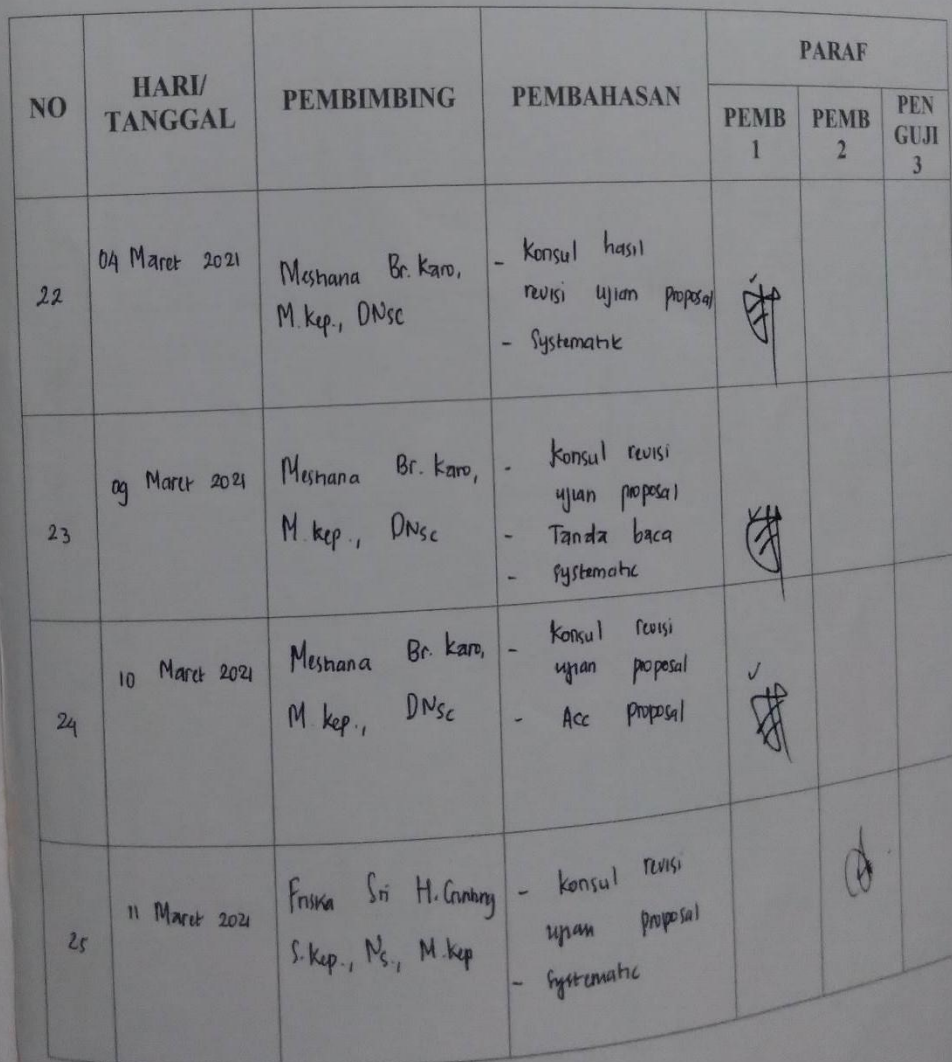 NO
HARI/
TANGGAL
PEMBIMBING
PEMBAHASAN
PARAF
PEMB
1
PEMB
2
PEN
GUJI
3
22
04 Maret 2021
Mestiana Br. Karo,
M. Kep., DNSc
- Konsul hasil
revisi ujian proposal
- Systematik
23
09 Maret 2021
Mestiana Br. Karo,
M. Kep., DNSc
- Konsul revisi
ujian proposal
- Tanda baca
- Systematic
24
10 Maret 2021
Mestiana Br. Karo,
M. Kep., DNSc
- Konsul revisi
ujian proposal
- Acc proposal
25
11 Maret 2021
Friska Sri H. Ginting
S. Kep., Ns., M. Kep
- Konsul revisi
ujian proposal
- Systematic